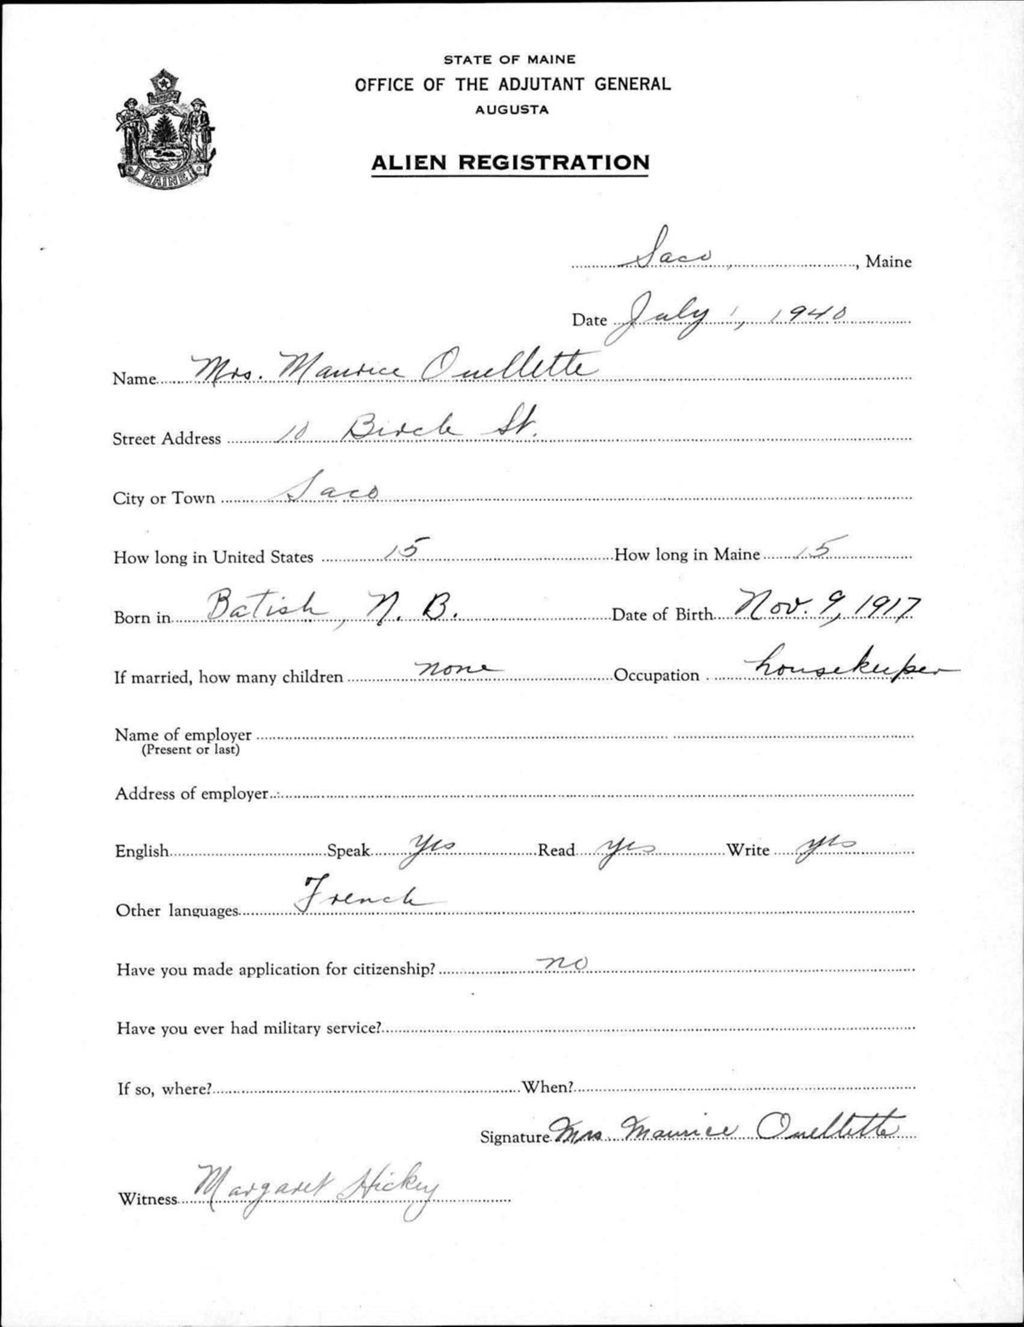 STATE OF MAINE
OFFICE OF THE ADJUTANT GENERAL
AUGUSTA
MAINE
ALIEN REGISTRATION
Saco, Maine
Date July 1, 1940
Name Mrs. Maurice Ouellette
Street Address 10 Birch St.
City or Town Saco
How long in United States 15 How long in Maine 15
Born in Batish, N. B. Date of Birth Nov. 9, 1917
If married, how many children none Occupation housekeeper
Name of employer
(Present or last)
Address of employer
English Speak yes Read yes Write yes
Other languages French
Have you made application for citizenship? no
Have you ever had military service?
If so, where? When?
Signature Mrs Maurice Ouellette
Witness Margaret Hickey